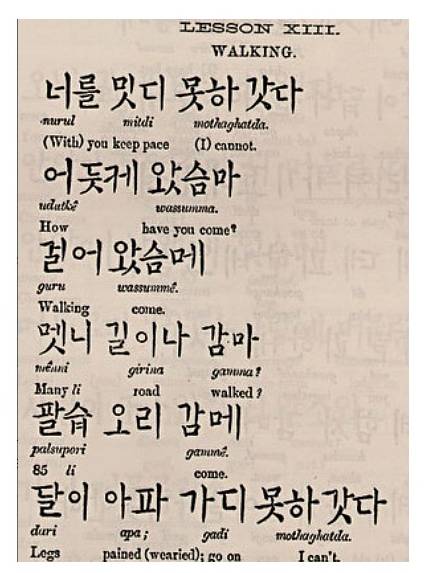 LESSON XIII.
WALKING.
너를 밋디 못하 갓다
nurul mitdi mothaghatda.
(With) you keep pace (I) cannot.
어둣게 왓슴마
udutkê wassumma.
How have you come?
걸어 왓슴메
guru wassummê.
Walking come.
멧니 길이나 감마
mênni girina gamma?
Many li road walked?
팔습 오리 감메
palsupori gammê.
85 li come.
달이 아파 가디 못하갓다
dari apa; gadi mothaghatda.
Legs pained (wearied); go on I can't.